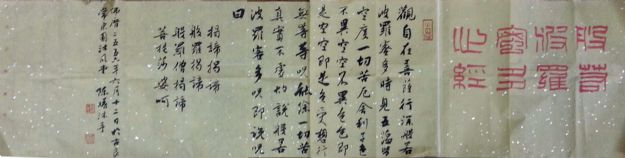 般若
波羅
蜜多
心經
觀自在菩薩行深般若
波羅蜜多時照見五蘊皆
空度一切苦厄舍利子色
不異空空不異色色即
是空空即是色受想行
無等等呪能除一切苦
真實不虛故說般若
波羅蜜多呪即說呪
曰
揭諦揭諦
般羅揭諦
般羅僧揭諦
菩提薩婆呵
佛曆二五五六年六月十二日於古